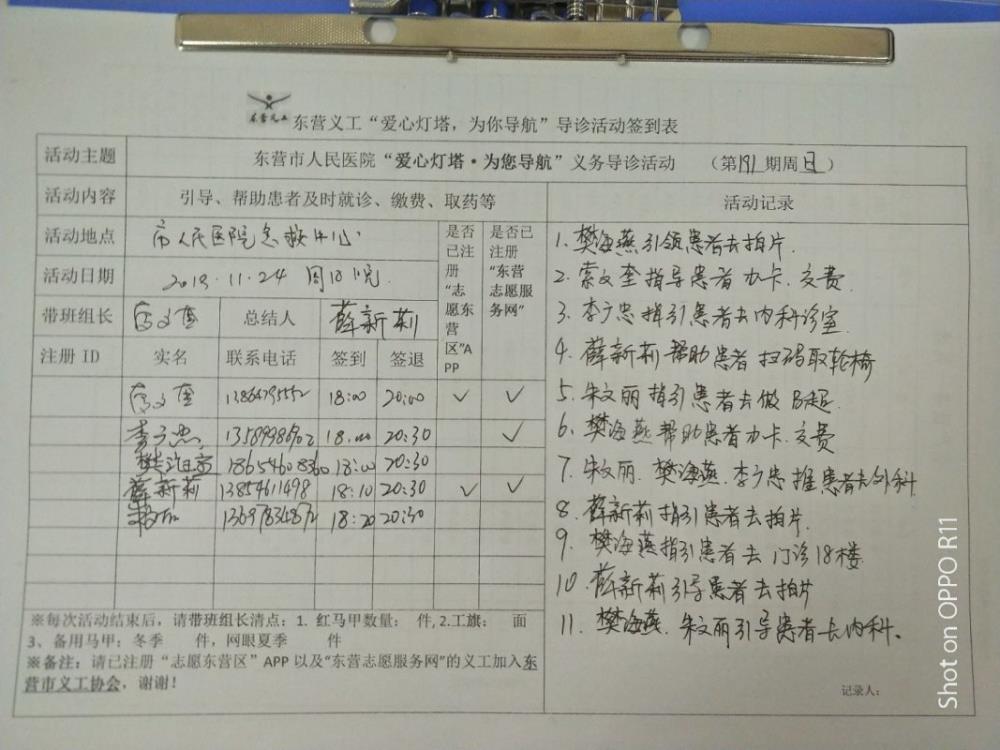 东营义工
东营义工“爱心灯塔，为你导航”导诊活动签到表
活动主题 东营市人民医院“爱心灯塔·为您导航”义务导诊活动 （第191期周日）
活动内容 引导、帮助患者及时就诊、缴费、取药等 活动记录
活动地点 市人民医院急救中心
是否已注册“志愿东营区”APP
是否已注册“东营志愿服务网”
活动日期 2019.11.24 周日晚
带班组长 总结人 薛新莉
注册 ID 实名 联系电话 签到 签退
18:00 20:00 ✓ ✓
李广忠 18:00 20:30 ✓
樊海燕 18654608360 18:00 20:30
薛新莉 13854611498 18:10 20:30 ✓ ✓
18:20 20:30
1. 樊海燕引领患者去拍片.
2. 索文奎指导患者办卡.交费.
3. 李广忠指引患者去内科诊室.
4. 薛新莉帮助患者扫码取轮椅
5. 朱文丽指引患者去做B超.
6. 樊海燕帮助患者办卡.交费
7. 朱文丽.樊海燕.李广忠推患者去外科.
8. 薛新莉指引患者去拍片.
9. 樊海燕指引患者去门诊18楼.
10. 薛新莉引导患者去拍片
11. 樊海燕.朱文丽引导患者去内科。
记录人：
※每次活动结束后，请带班组长清点：1. 红马甲数量： 件, 2.工旗： 面
3、备用马甲：冬季 件，网眼夏季 件
※备注：请已注册“志愿东营区”APP 以及“东营志愿服务网”的义工加入东
营市义工协会，谢谢！
Shot on OPPO R11